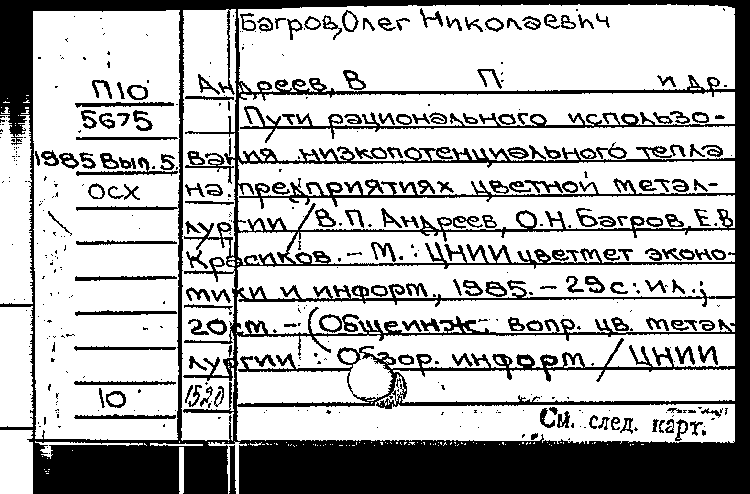 Багров, Олег Николаевич
П10 Андреев, В П и др.
5675 Пути рационального использо-
1985 Вып. 5. вания низкопотенциального тепла
осх на предприятиях цветной метал-
лургии / В.П. Андреев, О.Н. Багров, Е.В
Красиков. – М. : ЦНИИ цветмет эконо-
мики и информ., 1985. – 29 с : ил. ;
20 см. – (Общеинж. вопр. цв. метал-
лургии : Обзор. информ. / ЦНИИ
10 1520
См. след. карт.